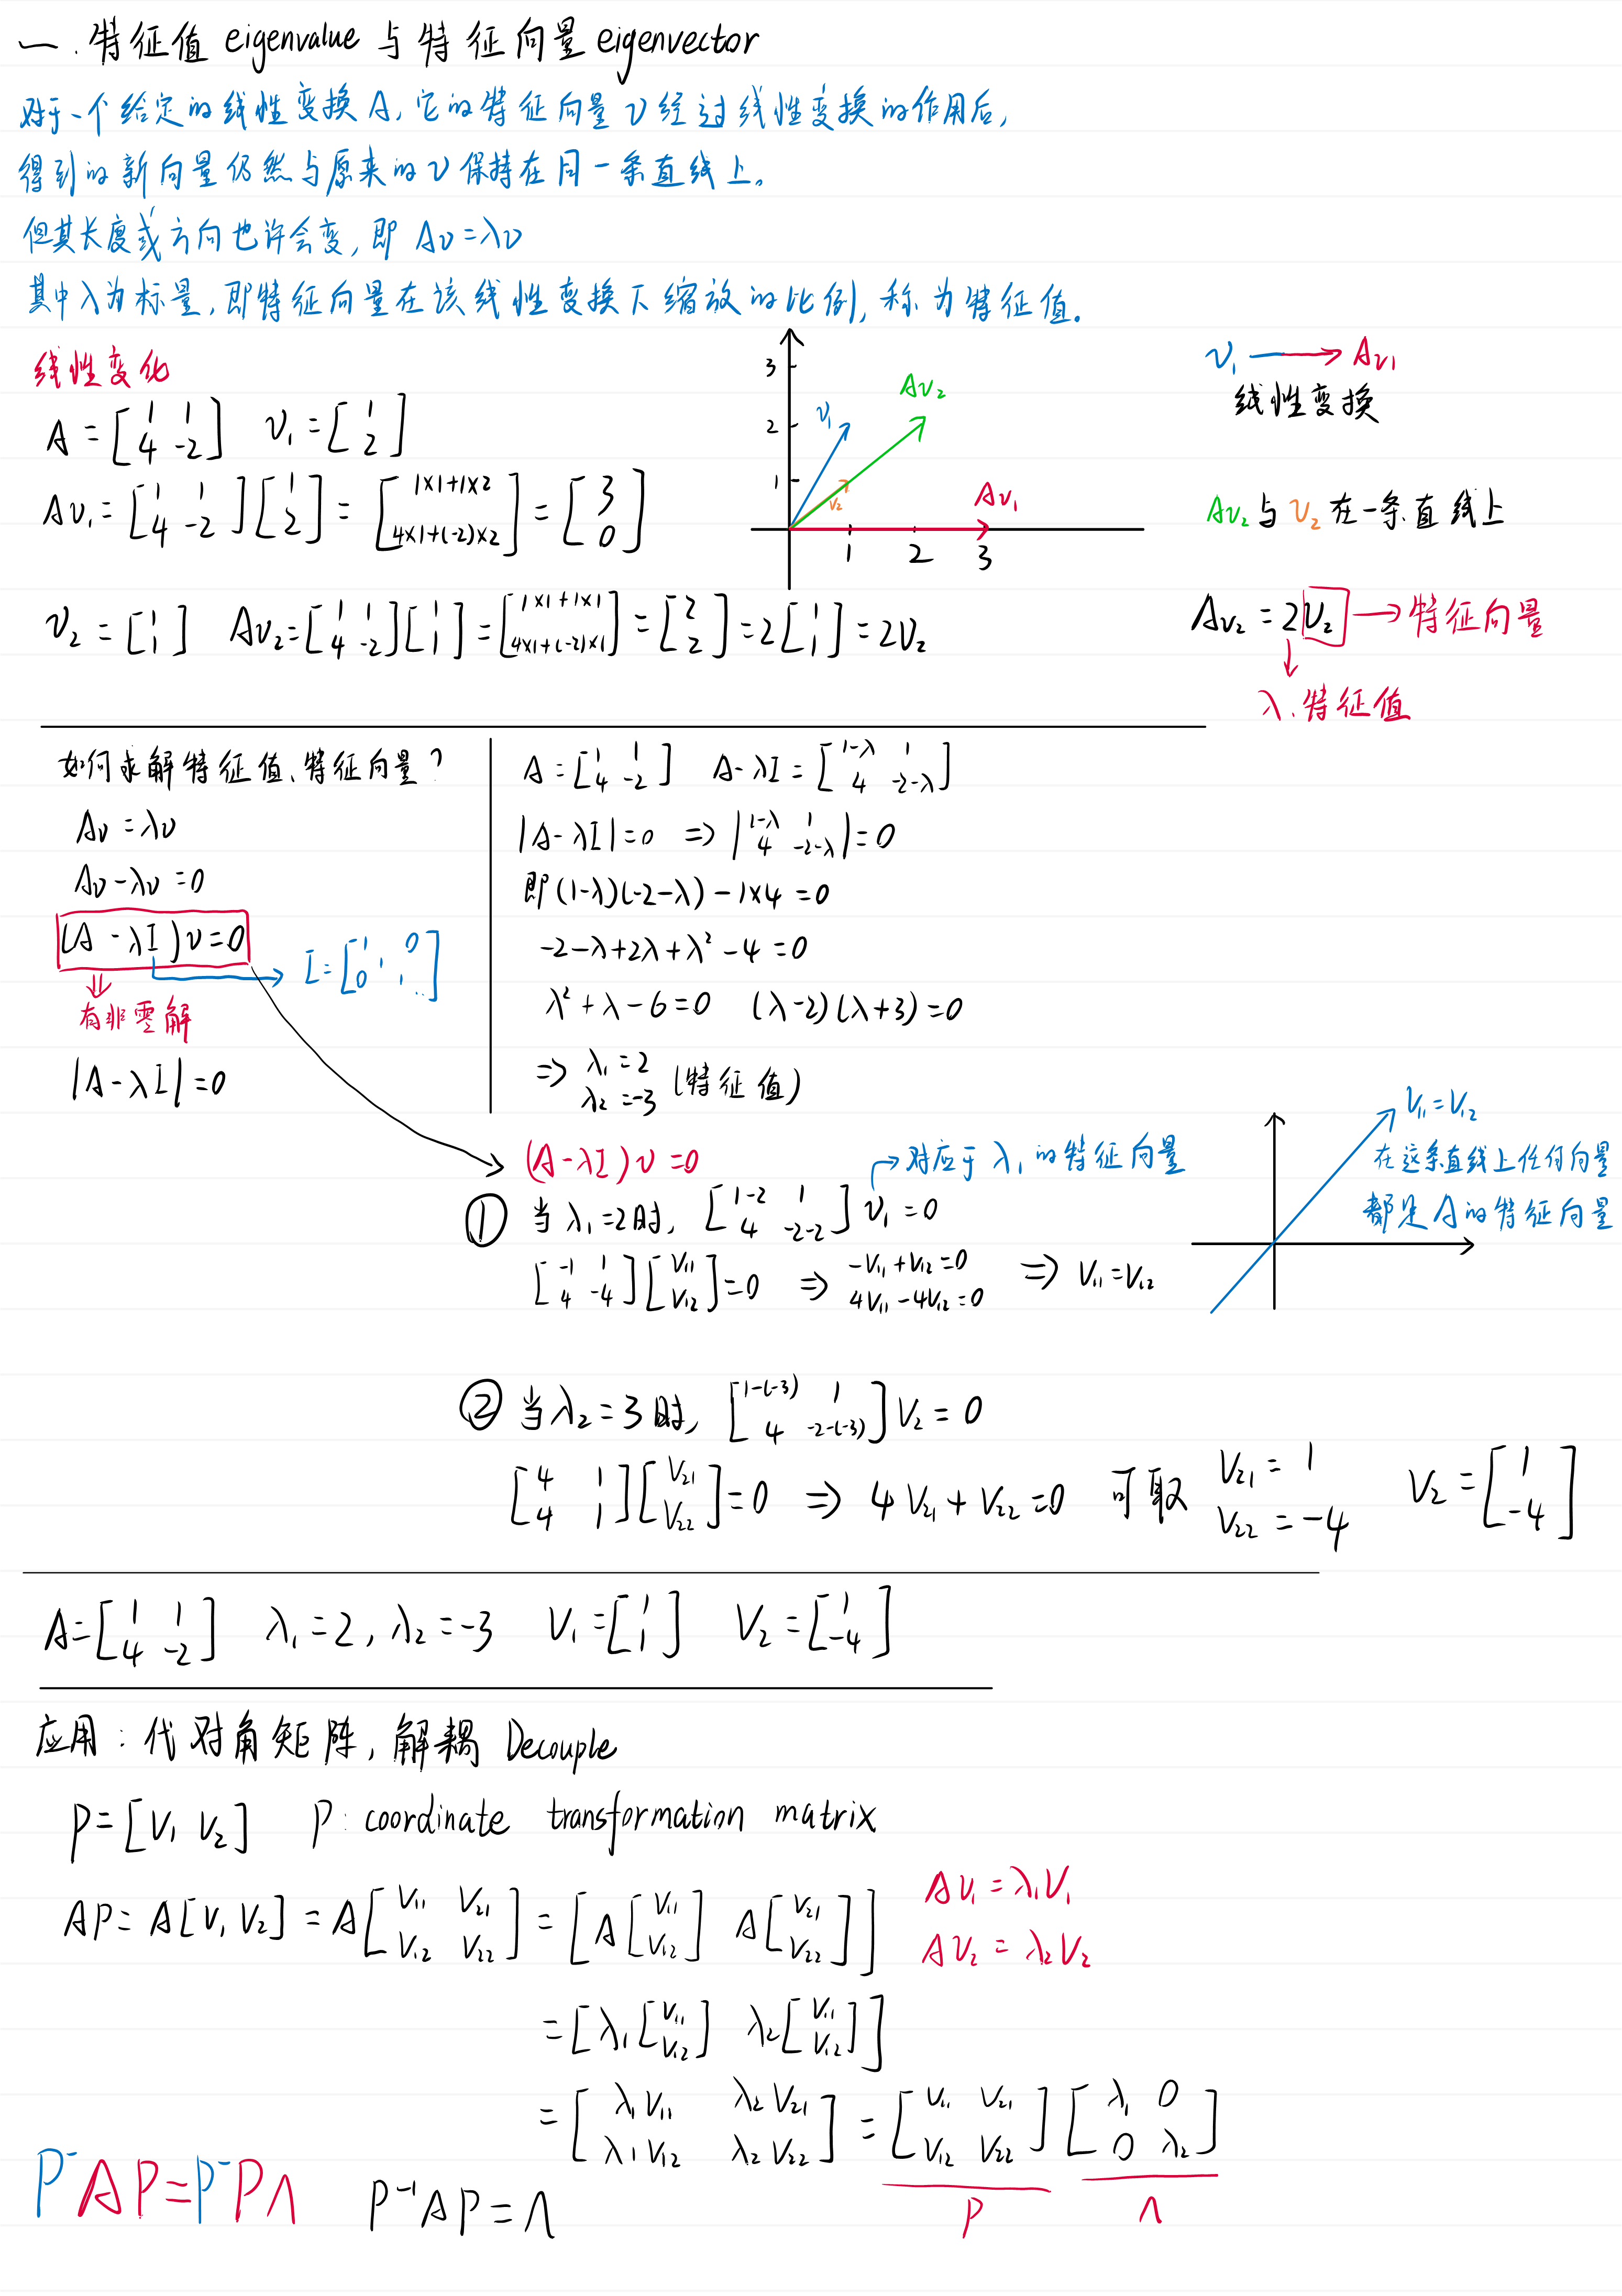 一.特征值 eigenvalue 与特征向量 eigenvector
对于一个给定的线性变换A,它的特征向量v经过线性变换的作用后,
得到的新向量仍然与原来的v保持在同一条直线上。
但其长度或方向也许会变,即 Av=λv
其中λ为标量,即特征向量在该线性变换下缩放的比例,称为特征值.
线性变化
A = [1 1; 4 -2] v₁ = [1; 2]
Av₁ = [1 1; 4 -2][1; 2] = [1×1+1×2; 4×1+(-2)×2] = [3; 0]
v₂ = [1; 1] Av₂ = [1 1; 4 -2][1; 1] = [1×1+1×1; 4×1+(-2)×1] = [2; 2] = 2[1; 1] = 2v₂
3
2
1
1 2 3
v₁
Av₂
v₂
Av₁
v₁ → Av₁
线性变换
Av₂与v₂在一条直线上
Av₂ = 2v₂ → 特征向量
↓
λ.特征值
如何求解特征值、特征向量?
Av = λv
Av - λv = 0
(A - λI)v = 0 → I = [1 0; 0 1 ⋱]
⇓
有非零解
|A - λI| = 0
A = [1 1; 4 -2] A - λI = [1-λ 1; 4 -2-λ]
|A - λI| = 0 ⇒ |1-λ 1; 4 -2-λ| = 0
即 (1-λ)(-2-λ) - 1×4 = 0
-2-λ+2λ+λ² - 4 = 0
λ² + λ - 6 = 0 (λ-2)(λ+3) = 0
⇒ λ₁ = 2
λ₂ = -3 (特征值)
(A - λI)v = 0
→对应于λ₁的特征向量
① 当λ₁=2时, [1-2 1; 4 -2-2] v₁ = 0
[-1 1; 4 -4][v₁₁; v₁₂] = 0 ⇒ -v₁₁+v₁₂=0
4v₁₁-4v₁₂=0 ⇒ v₁₁=v₁₂
v₁₁=v₁₂
在这条直线上任何向量
都是A的特征向量
② 当λ₂=3时, [1-(-3) 1; 4 -2-(-3)] v₂ = 0
[4 1; 4 1][v₂₁; v₂₂] = 0 ⇒ 4v₂₁+v₂₂=0 可取 v₂₁=1
v₂₂=-4 v₂=[1; -4]
A = [1 1; 4 -2] λ₁=2, λ₂=-3 v₁=[1; 1] v₂=[1; -4]
应用:代对角矩阵,解耦 Decouple
P=[v₁ v₂] P: coordinate transformation matrix
AP = A[v₁ v₂] = A[v₁₁ v₂₁; v₁₂ v₂₂] = [A[v₁₁; v₁₂] A[v₂₁; v₂₂]]
Av₁=λ₁v₁
Av₂=λ₂v₂
= [λ₁[v₁₁; v₁₂] λ₂[v₁₁; v₁₂]]
= [λ₁v₁₁ λ₂v₂₁; λ₁v₁₂ λ₂v₂₂] = [v₁₁ v₂₁; v₁₂ v₂₂][λ₁ 0; 0 λ₂]
P Λ
P⁻AP=P⁻PΛ P⁻¹AP=Λ